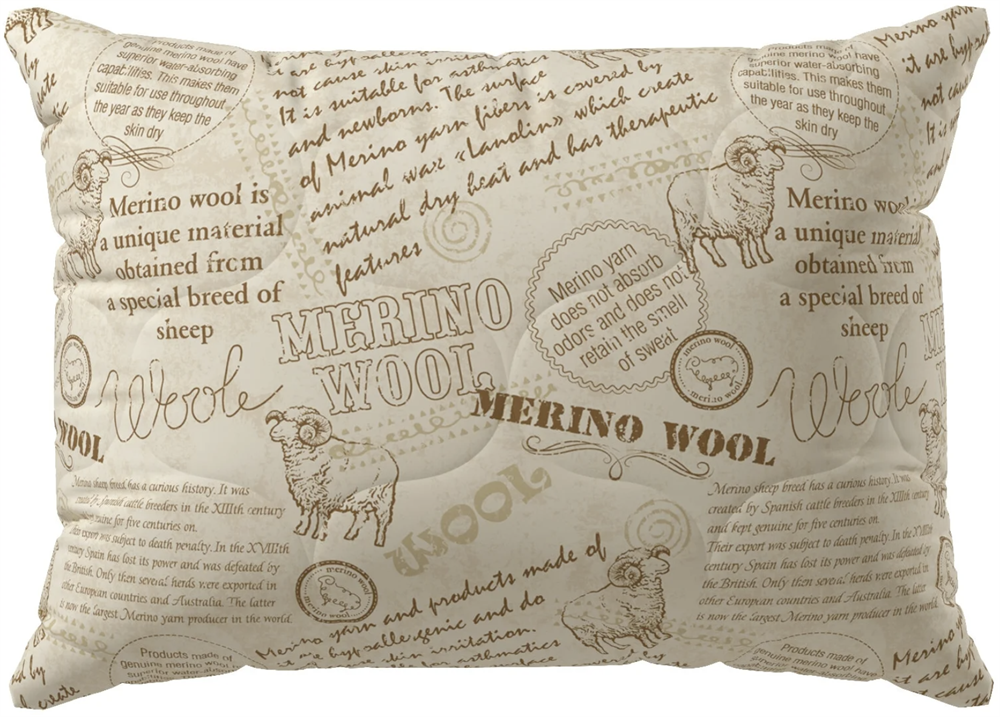 Products made of
genuine merino wool have
superior water-absorbing
capabilities. This makes them
suitable for use throughout
the year as they keep the
skin dry
not cause skin irritation.
It is suitable for asthmatics
and newborns. The surface
of Merino yarn fibers is covered by
animal wax «Lanolin» which create
natural dry heat and has therapeutic
features
Products made of
genuine merino wool have
superior water-absorbing
capabilities. This makes them
suitable for use throughout
the year as they keep the
skin dry
Merino y
it are hyp
not cau
It is
and
Merino wool is
a unique material
obtained from
a special breed of
sheep
Merino woo
a unique material
obtained from
a special breed of
sheep
MERINO
WOOL
Merino yarn
does not absorb
odors and does not
retain the smell
of sweat
merino wool
merino wool
Woole
Woole
WOOL
MERINO WOOL
WOOL
Merino sheep breed has a curious history. It was
created by Spanish cattle breeders in the XIIIth century
genuine for five centuries on.
Their export was subject to death penalty. In the XVIIIth
century Spain has lost its power and was defeated by
the British. Only then several herds were exported in
other European countries and Australia. The latter
is now the largest Merino yarn producer in the world.
Merino sheep breed has a curious history. It was
created by Spanish cattle breeders in the XIIIth century
and kept genuine for five centuries on.
Their export was subject to death penalty. In the XVIIIth
century Spain has lost its power and was defeated by
the British. Only then several herds were exported in
other European countries and Australia. The latter
is now the largest Merino yarn producer in the world.
merino wool
merino wool
Merino yarn and products made of
it are hypoallergenic and do
not cause skin irritation.
Products made of
genuine merino wool have
superior water-absorbing
Products made of
genuine merino wool have
superior water-absorbing
Merino
it are hyp
not cause